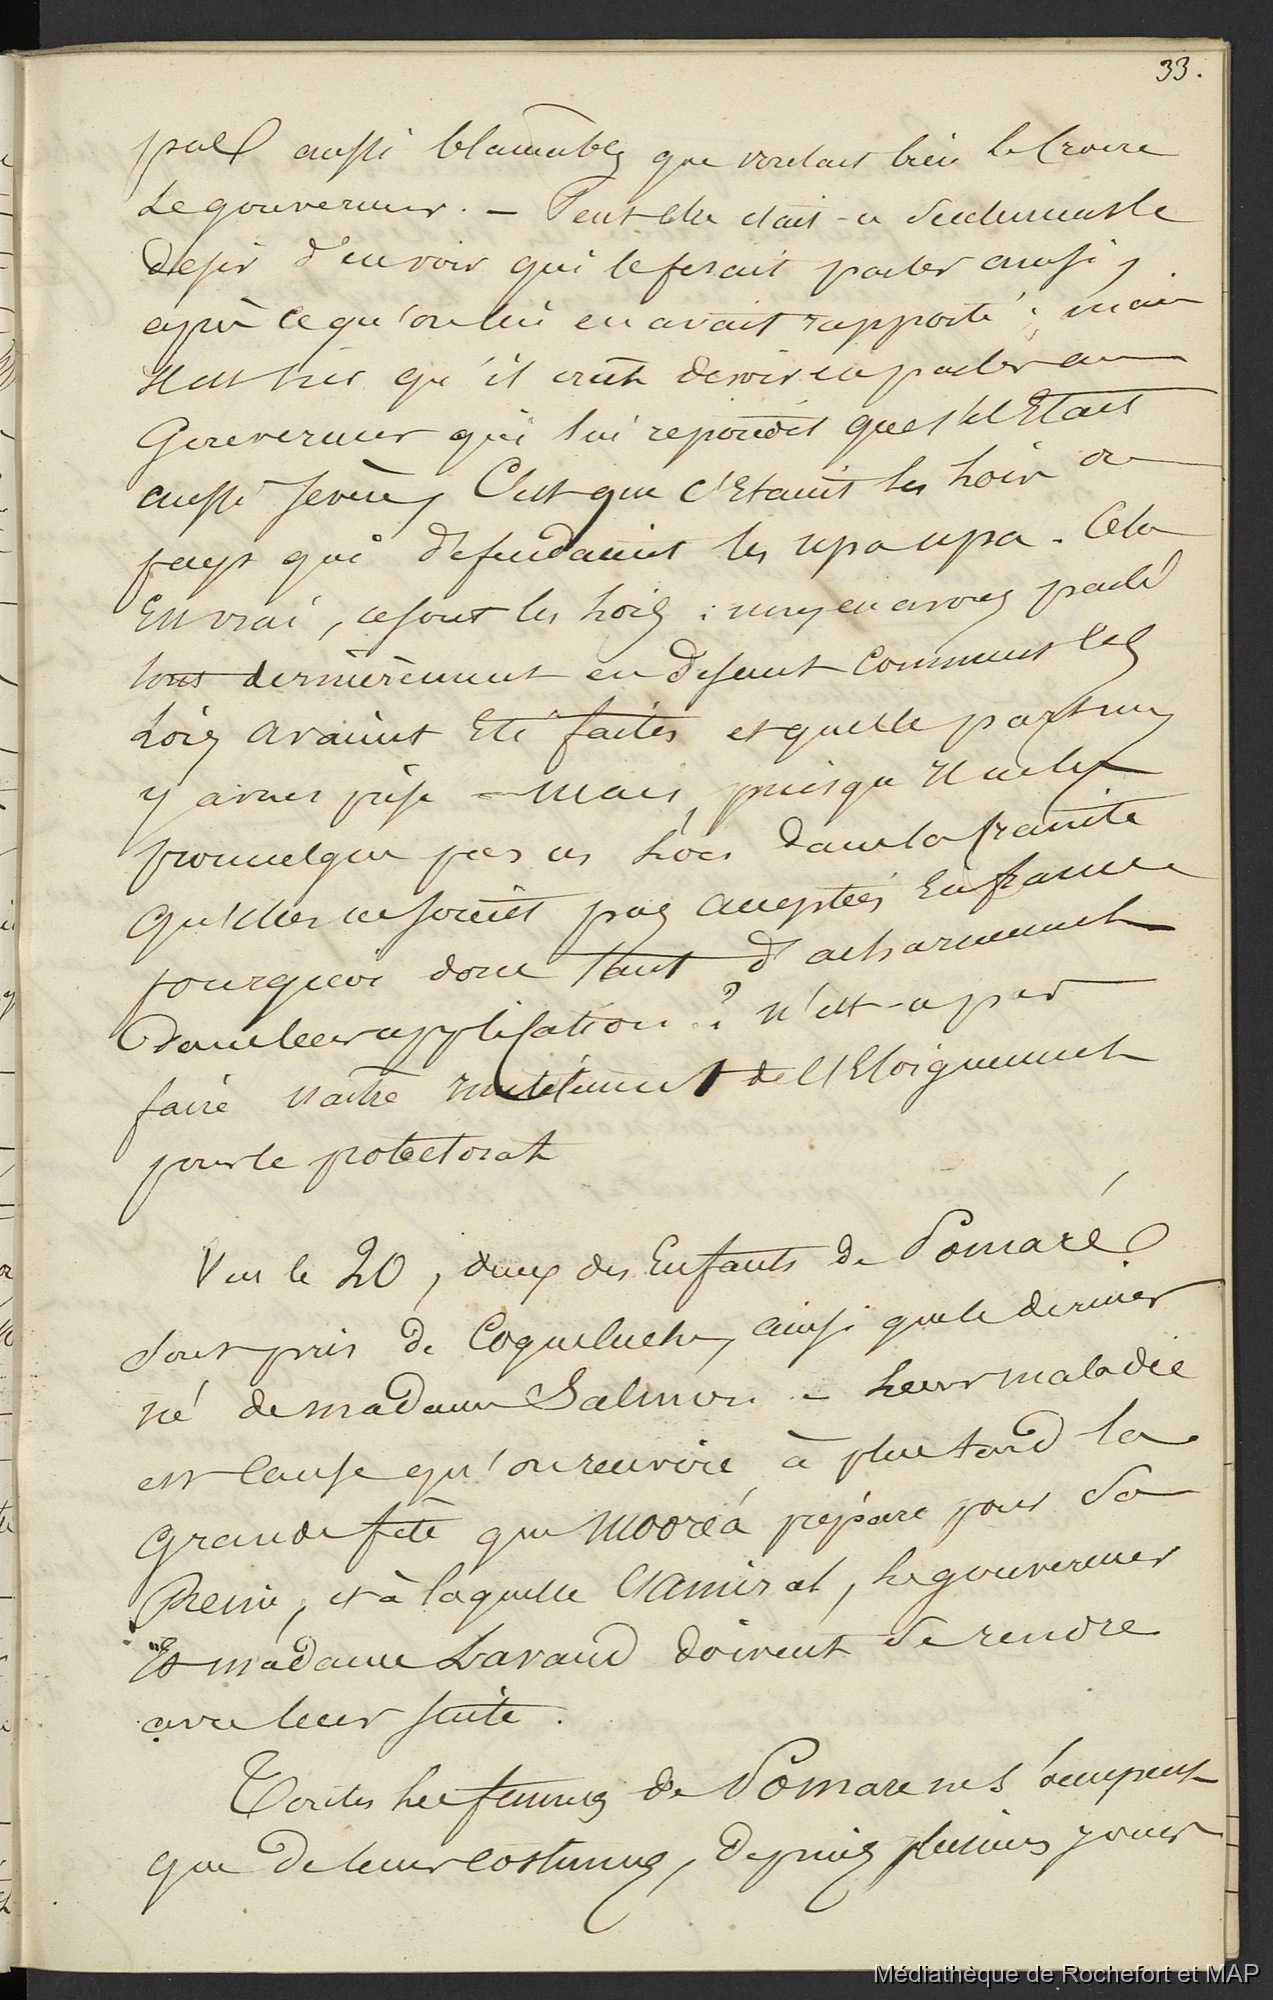 33.
pas aussi blamables que voulait bien le Croire
Le gouverneur. — Peut être etait-ce seulement le
desir d'en voir qui le ferait parler ainsi,
après ce qu'on lui en avait rapporté : mais
Il est très qu'il crut devoir en parler au
Gouverneur qui lui repondit que s'il Etait
aussi severe, C'est que c'Etaient les Lois du
pays qui defendaient les upa upa. Cela
Est vrai, ce sont les Lois : nous en avons parlé
tous dernièrement en disant comment Ces
Lois avaient Eté faites et quelle part nous
y avons prise — Mais, puisqu'Il ne les
promulgue pas ces Lois dans la crainte
qu'Elles ne soient pas acceptées En france
pourquoi donc tant d'acharnement
Dans leur application ? n'est-ce pas
faire naitre de l'Eloignement
pour le protectorat
Vers le 20, deux des Enfants de Pomaré
Sont pris de Coqueluche, ainsi que le dernier
né de madame Salmon — Leur maladie
est Cause qu'on renvoie à plus tard la
Grande fête que Mooréa prépare pour Sa
Reine, et à laquelle l'Amiral, Le gouverneur
Et madame Lavaud doivent Se rendre
avec leur suite.
Toutes Les femmes de Pomare ne s'occupent
que De leurs costumes, Depuis plusieurs jours
Médiathèque de Rochefort et MAP